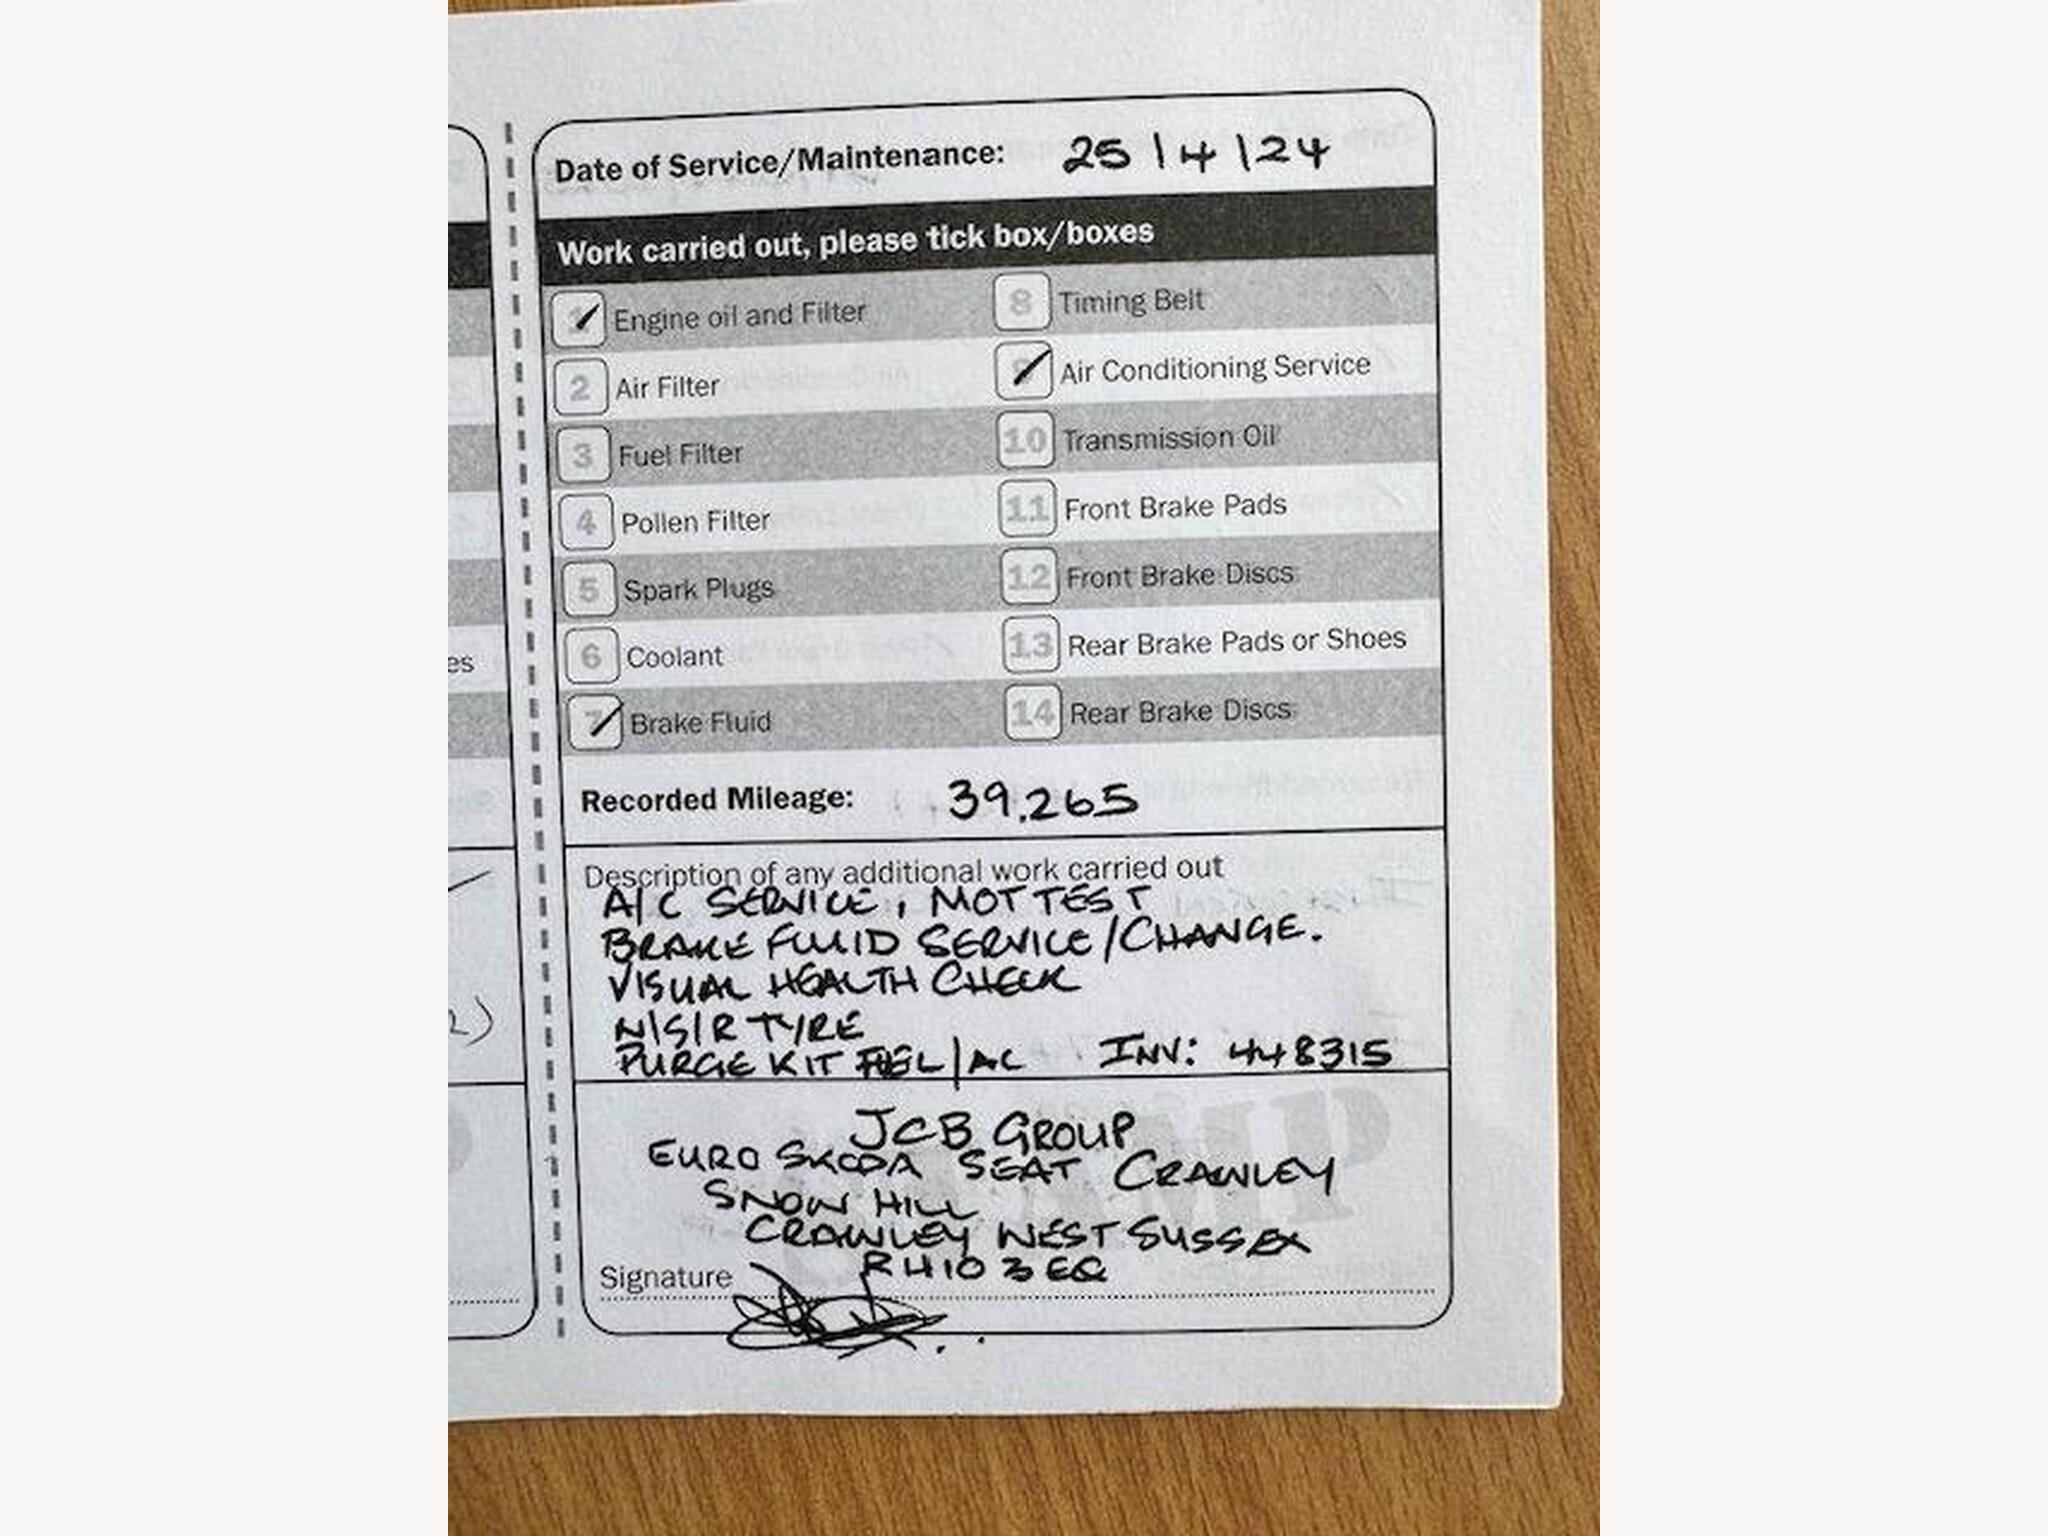 Date of Service/Maintenance: 25/4/24
Work carried out, please tick box/boxes
1 Engine oil and Filter
8 Timing Belt
2 Air Filter
9 Air Conditioning Service
3 Fuel Filter
10 Transmission Oil
4 Pollen Filter
11 Front Brake Pads
5 Spark Plugs
12 Front Brake Discs
6 Coolant
13 Rear Brake Pads or Shoes
7 Brake Fluid
14 Rear Brake Discs
Recorded Mileage: 39.265
Description of any additional work carried out
A/C SERVICE, MOT TEST
BRAKE FLUID SERVICE/CHANGE.
VISUAL HEALTH CHECK
N/S/R TYRE
PURGE KIT FUEL/AC INV: 448315
JCB GROUP
EURO SKODA SEAT CRAWLEY
SNOW HILL
CRAWLEY WEST SUSSEX
RH10 3EQ
Signature
es